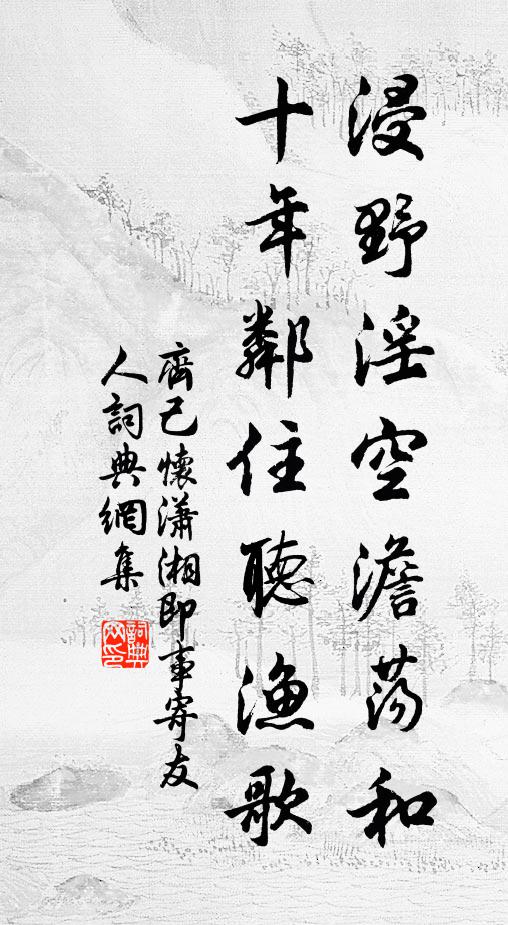 浸野淫空澹荡和
十年鄰住聽漁歌
齊己懷瀟湘即事寄友
人詞典網集
詞典
网印